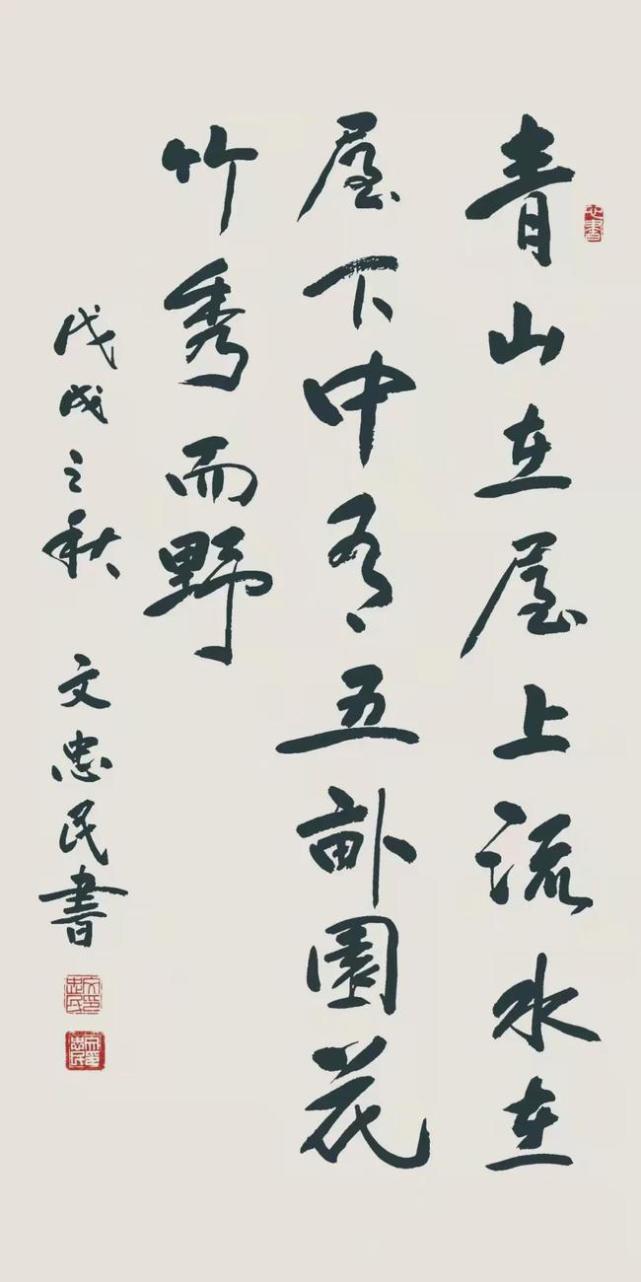 青山在屋上流水在
屋下中有五畝園花
竹秀而野
戊戌之秋 文忠民書